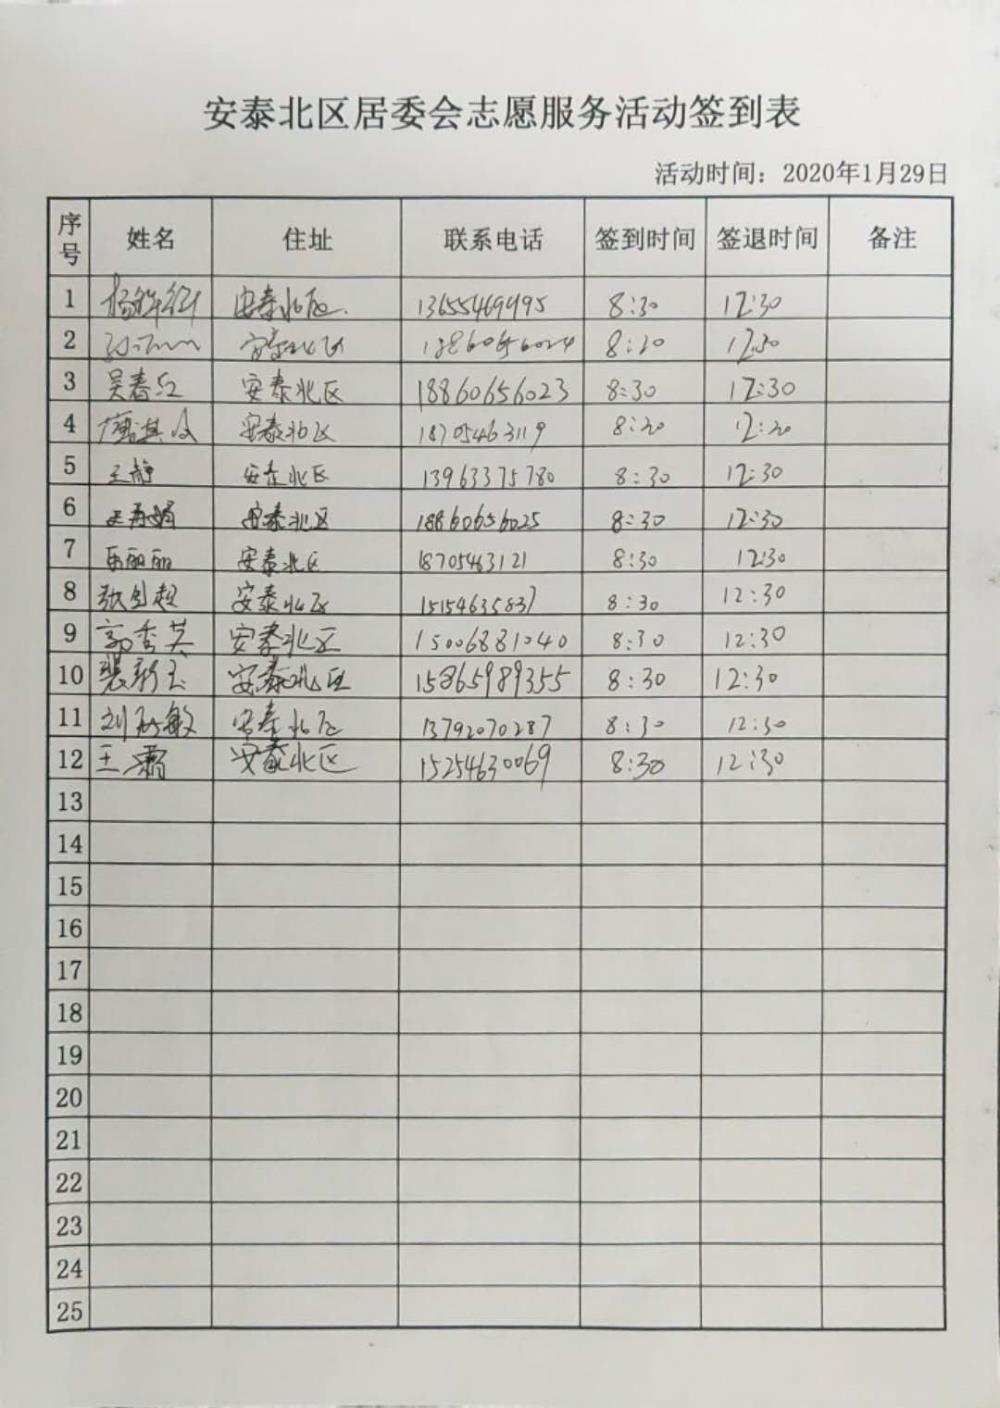 安泰北区居委会志愿服务活动签到表
活动时间：2020年1月29日
序号 姓名 住址 联系电话 签到时间 签退时间 备注
1 安泰北区. 13655469495 8:30 12:30
2 安泰北区 18860656024 8:30 12:30
3 吴春红 安泰北区 18860656023 8:30 12:30
4 安泰北区 18705463119 8:30 12:30
5 王静 安泰北区 13963375780 8:30 12:30
6 安泰北区 18860656025 8:30 12:30
7 安泰北区 18705463121 8:30 12:30
8 安泰北区 15154635837 8:30 12:30
9 郭秀英 安泰北区 15006881040 8:30 12:30
10 裴新玉 安泰北区 15865989355 8:30 12:30
11 安泰北区 13792070287 8:30 12:30
12 王霜 安泰北区 15254630069 8:30 12:30
13
14
15
16
17
18
19
20
21
22
23
24
25